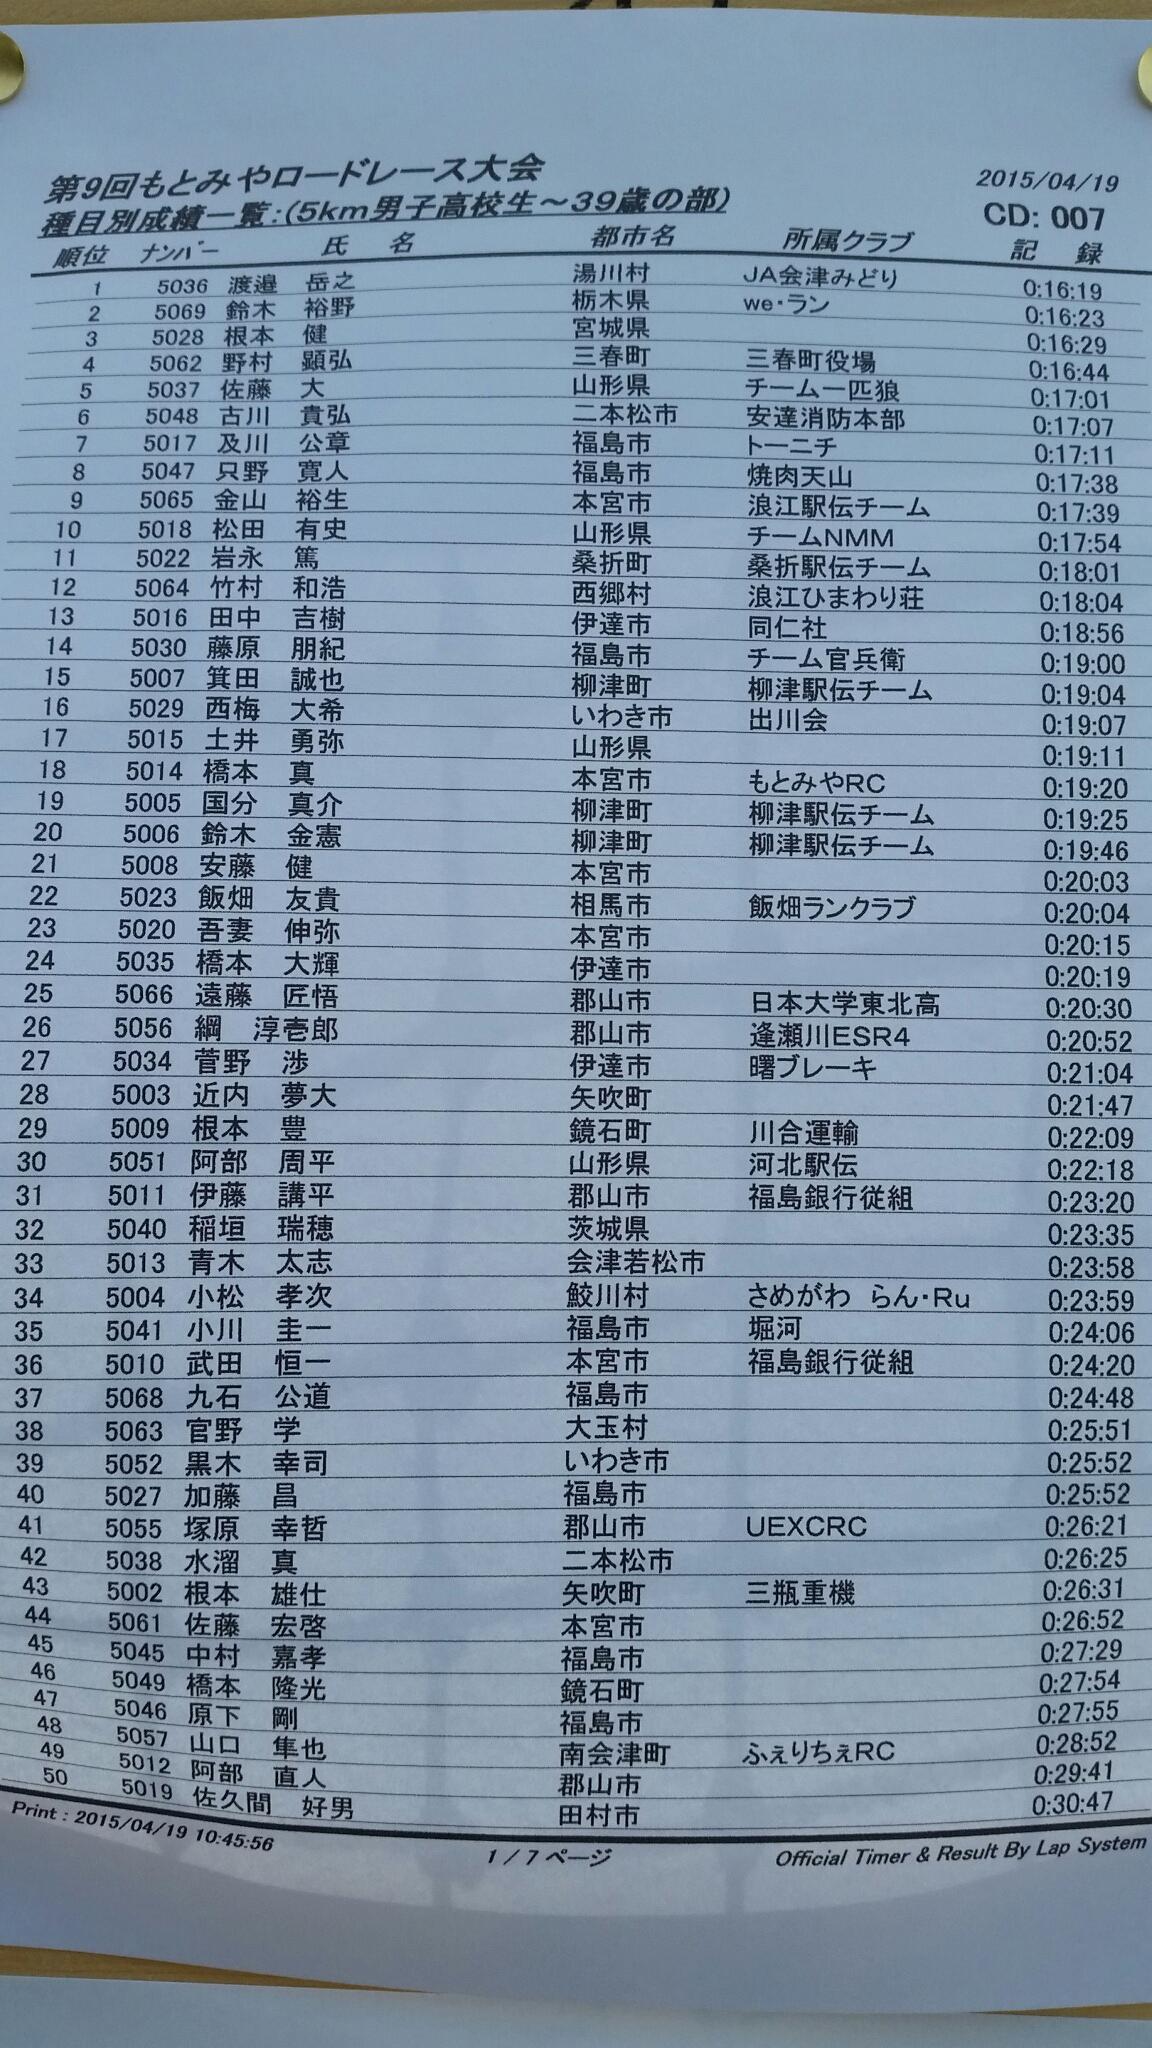 第9回もとみやロードレース大会 2015/04/19
種目別成績一覧:(5km男子高校生～39歳の部) CD: 007
順位 ナンバー 氏 名 都市名 所属クラブ 記 録
1 5036 渡邉 岳之 湯川村 JA会津みどり 0:16:19
2 5069 鈴木 裕野 栃木県 we・ラン 0:16:23
3 5028 根本 健 宮城県 0:16:29
4 5062 野村 顕弘 三春町 三春町役場 0:16:44
5 5037 佐藤 大 山形県 チーム一匹狼 0:17:01
6 5048 古川 貴弘 二本松市 安達消防本部 0:17:07
7 5017 及川 公章 福島市 トーニチ 0:17:11
8 5047 只野 寛人 福島市 焼肉天山 0:17:38
9 5065 金山 裕生 本宮市 浪江駅伝チーム 0:17:39
10 5018 松田 有史 山形県 チームNMM 0:17:54
11 5022 岩永 篤 桑折町 桑折駅伝チーム 0:18:01
12 5064 竹村 和浩 西郷村 浪江ひまわり荘 0:18:04
13 5016 田中 吉樹 伊達市 同仁社 0:18:56
14 5030 藤原 朋紀 福島市 チーム官兵衛 0:19:00
15 5007 箕田 誠也 柳津町 柳津駅伝チーム 0:19:04
16 5029 西梅 大希 いわき市 出川会 0:19:07
17 5015 土井 勇弥 山形県 0:19:11
18 5014 橋本 真 本宮市 もとみやRC 0:19:20
19 5005 国分 真介 柳津町 柳津駅伝チーム 0:19:25
20 5006 鈴木 金憲 柳津町 柳津駅伝チーム 0:19:46
21 5008 安藤 健 本宮市 0:20:03
22 5023 飯畑 友貴 相馬市 飯畑ランクラブ 0:20:04
23 5020 吾妻 伸弥 本宮市 0:20:15
24 5035 橋本 大輝 伊達市 0:20:19
25 5066 遠藤 匠悟 郡山市 日本大学東北高 0:20:30
26 5056 綱 淳壱郎 郡山市 逢瀬川ESR4 0:20:52
27 5034 菅野 渉 伊達市 曙ブレーキ 0:21:04
28 5003 近内 夢大 矢吹町 0:21:47
29 5009 根本 豊 鏡石町 川合運輸 0:22:09
30 5051 阿部 周平 山形県 河北駅伝 0:22:18
31 5011 伊藤 講平 郡山市 福島銀行従組 0:23:20
32 5040 稲垣 瑞穂 茨城県 0:23:35
33 5013 青木 太志 会津若松市 0:23:58
34 5004 小松 孝次 鮫川村 さめがわ らん・Ru 0:23:59
35 5041 小川 圭一 福島市 堀河 0:24:06
36 5010 武田 恒一 本宮市 福島銀行従組 0:24:20
37 5068 九石 公道 福島市 0:24:48
38 5063 官野 学 大玉村 0:25:51
39 5052 黒木 幸司 いわき市 0:25:52
40 5027 加藤 昌 福島市 0:25:52
41 5055 塚原 幸哲 郡山市 UEXCRC 0:26:21
42 5038 水溜 真 二本松市 0:26:25
43 5002 根本 雄仕 矢吹町 三瓶重機 0:26:31
44 5061 佐藤 宏啓 本宮市 0:26:52
45 5045 中村 嘉孝 福島市 0:27:29
46 5049 橋本 隆光 鏡石町 0:27:54
47 5046 原下 剛 福島市 0:27:55
48 5057 山口 隼也 南会津町 ふぇりちぇRC 0:28:52
49 5012 阿部 直人 郡山市 0:29:41
50 5019 佐久間 好男 田村市 0:30:47
Print : 2015/04/19 10:45:56 1 / 7 ページ Official Timer & Result By Lap System